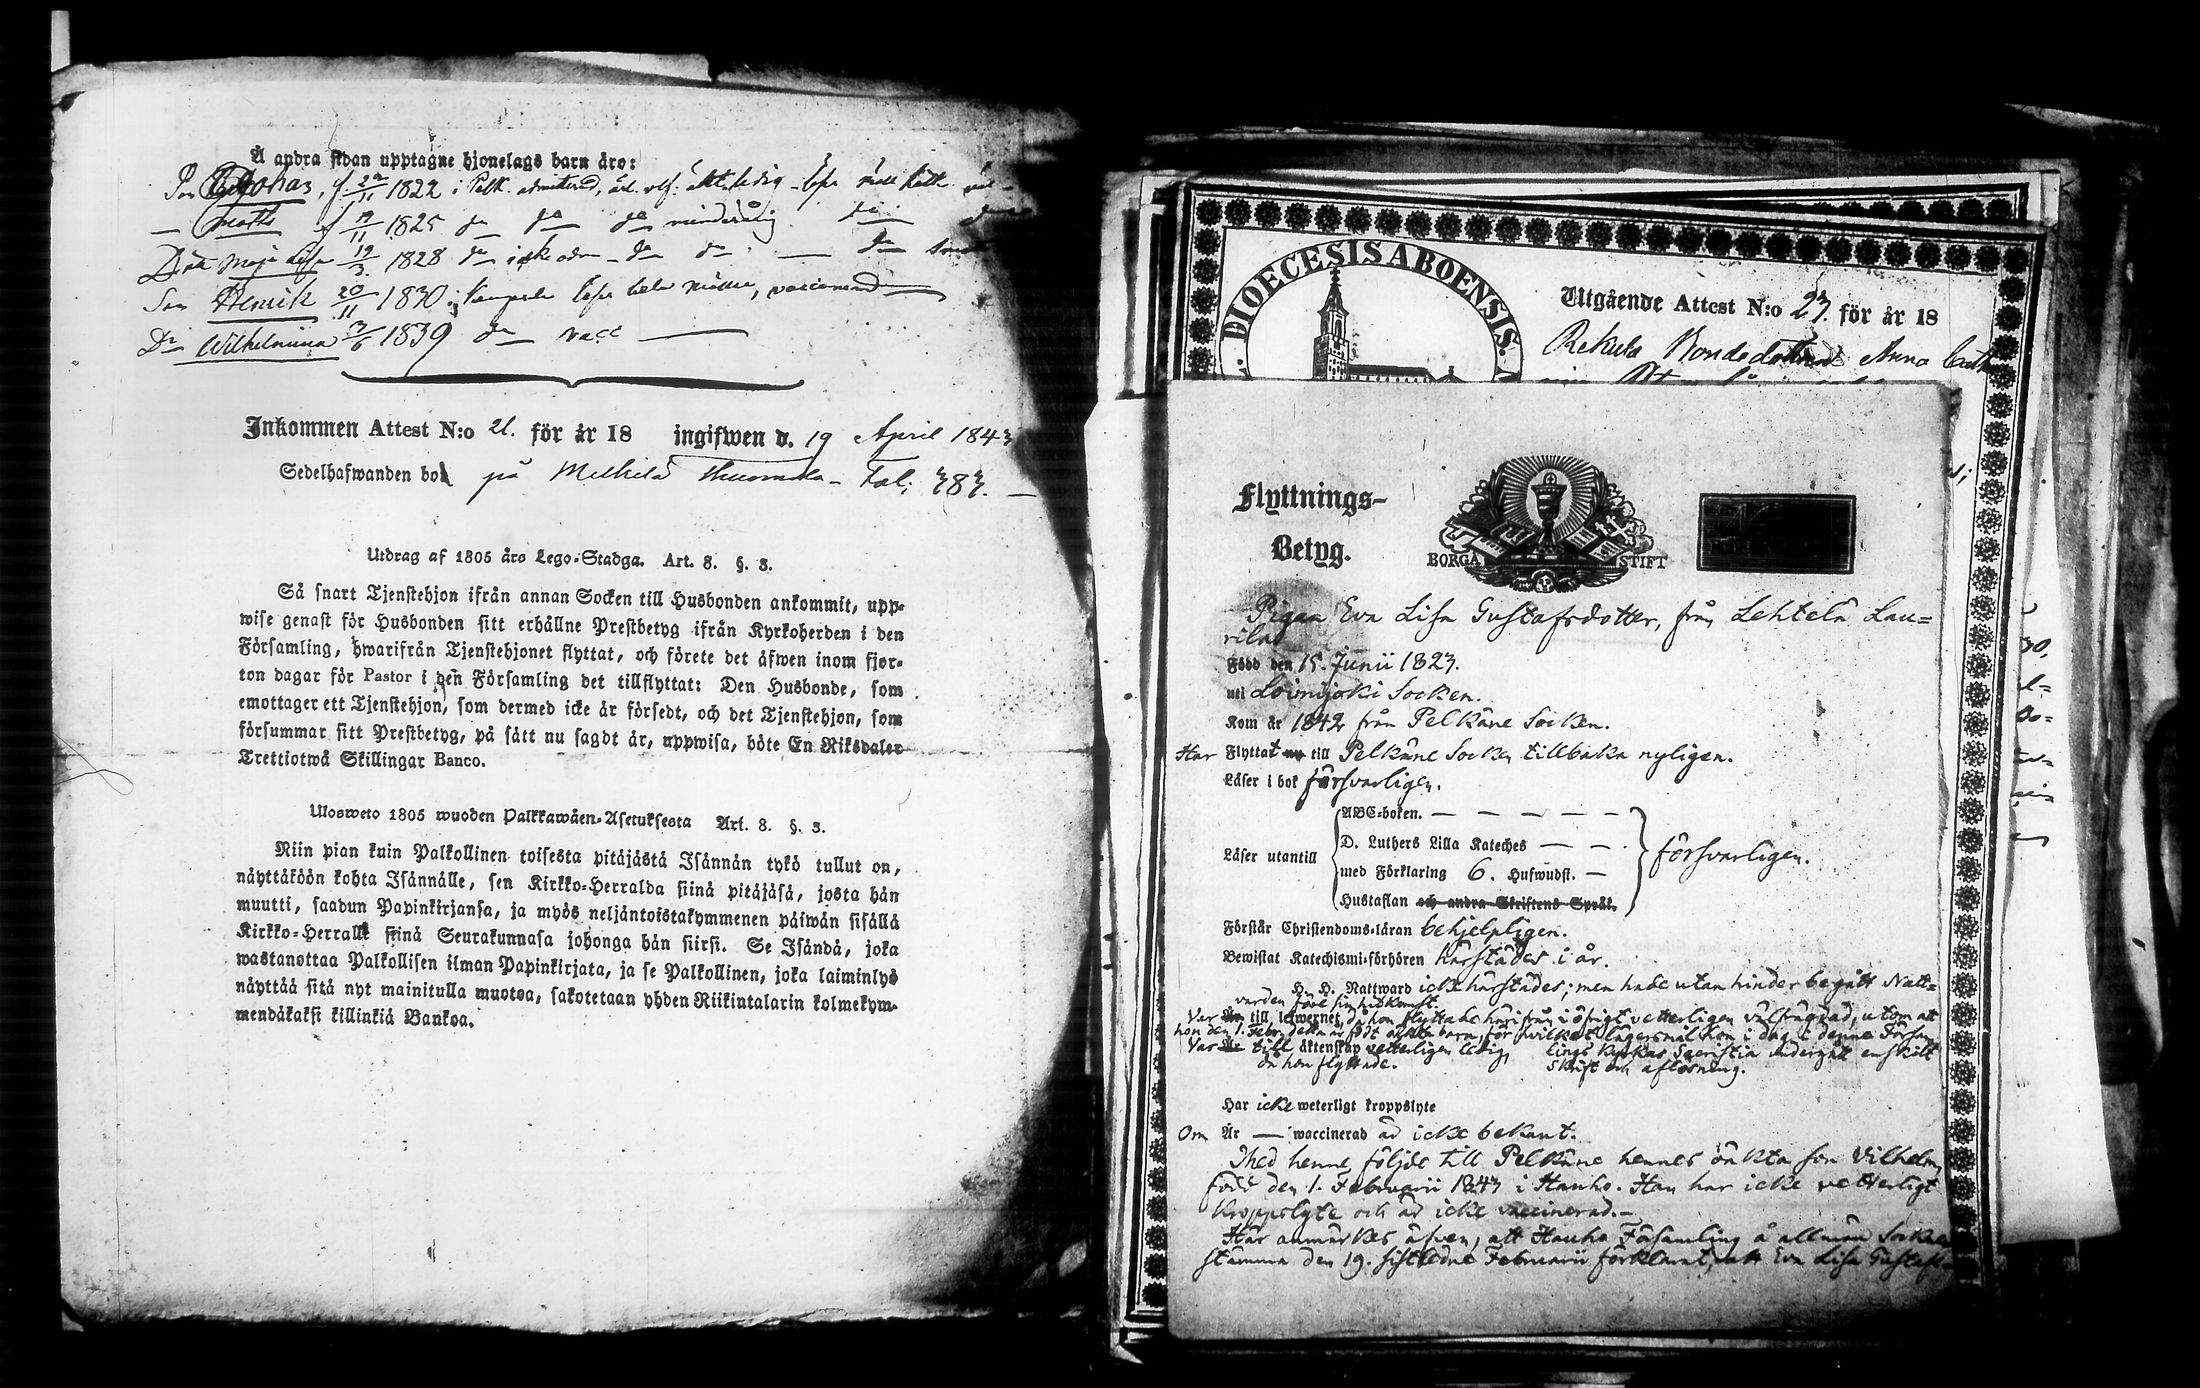 Å andra sidan upptagne hjonelags barn äro:
Son Johas, f. 22/11 1822 i Pelk. admitterad,
— Matts f 1825 do do do minderårig do
Dotr Maja Lisa 19/3 1828 do icke adm— do do — do
Son Henrik 20/11 1830.
Dr Wilhelmina 3/6 1839 do vacc
Inkommen Attest N:o 21. för år 18 ingifwen d. 19 April 1843
Sedelhafwanden bor på Melkilä Huomola Fol; 383.
Utdrag af 1805 års Lego-Stadga. Art. 8. §. 3.
Så snart Tjenstehjon ifrån annan Socken till Husbonden ankommit, upp-
wise genast för Husbonden sitt erhållne Prestbetyg ifrån Kyrkoherden i den
Församling, hwarifrån Tjenstehjonet flyttat, och förete det äfwen inom fjor-
ton dagar för Pastor i den Församling det tillflyttat: Den Husbonde, som
emottager ett Tjenstehjon, som dermed icke är försedt, och det Tjenstehjon, som
försummar sitt Prestbetyg, på sätt nu sagdt är, uppwisa, böte En Riksdaler
Trettiotwå Skillingar Banco.
Ulosweto 1805 wuoden Palkkawäen-Asetuksesta Art. 8. §. 3.
Niin pian kuin Palkollinen toisesta pitäjästä Isännän tykö tullut on,
näyttäköön kohta Isännälle, sen Kirkko-Herralda siinä pitäjäsä, josta hän
muutti, saadun Papinkirjansa, ja myös neljäntoistakymmenen päiwän sisällä
Kirkko-Herralle siinä Seurakunnasa johonga hän siirsi. Se Isändä, joka
wastanottaa Palkollisen ilman Papinkirjata, ja se Palkollinen, joka laiminlyö
näyttää sitä nyt mainitulla muotoa, sakotetaan yhden Riikintalarin kolmekym-
mendäkaksi killinkiä Bankoa.
DIOECESIS ABOENSIS.
Utgående Attest N:o 23. för år 18
Rekula Bondedottren Anna Cath
Flyttnings-
Betyg.
BORGÅ STIFT
Pigan Eva Lisa Gustafsdotter, från Lehtelä Lau=
rila
Född den 15. Junii 1823.
uti Loimijoki Socken.
Kom år 1842 från Pelkäne Socken.
Har Flyttat nu till Pelkäne Socken tillbaka nyligen.
Läser i bok försvarligen.
ABC-boken. — — — — — —
Läser utantill D. Luthers Lilla Kateches — — försvarligen.
med Förklaring 6. Hufwudst. —
Hustaflan och andra Skriftens Språk.
Förstår Christendoms-läran behjelpligen.
Bewistat Katechismi-förhören härstädes i år.
H. H. Nattward icke härstädes; men hade utan hinder begått Natt=
varden före sin hitkomst.
Var Är till lefwernet, då hon flyttade härifrån i öfrigt vetterligen välfrägdad, utom att
hon den 1. Febr. detta år födt oäkta barn, för hvilket lägersmål hon i dag i denne Försam-
Var Är till äktenskap vetterligen ledig, lings Kyrkas Sacristia undergått enskilt
då hon flyttade. Skrift och aflösning.
Har icke weterligt kroppslyte
Om Är — waccinerad är icke bekant.
Med henne följde till Pelkäne hennes oäkta son Vilhelm,
född den 1. Februarii 1843 i Hauho. Han har icke vetterligt
kroppslyte och är icke vaccinerad.—
Här anmärkes äfven, att Hauho Församling å allmän Socken
stämma den 19. sistledne Februarii förklarat, att Eva Lisa Gustafs-